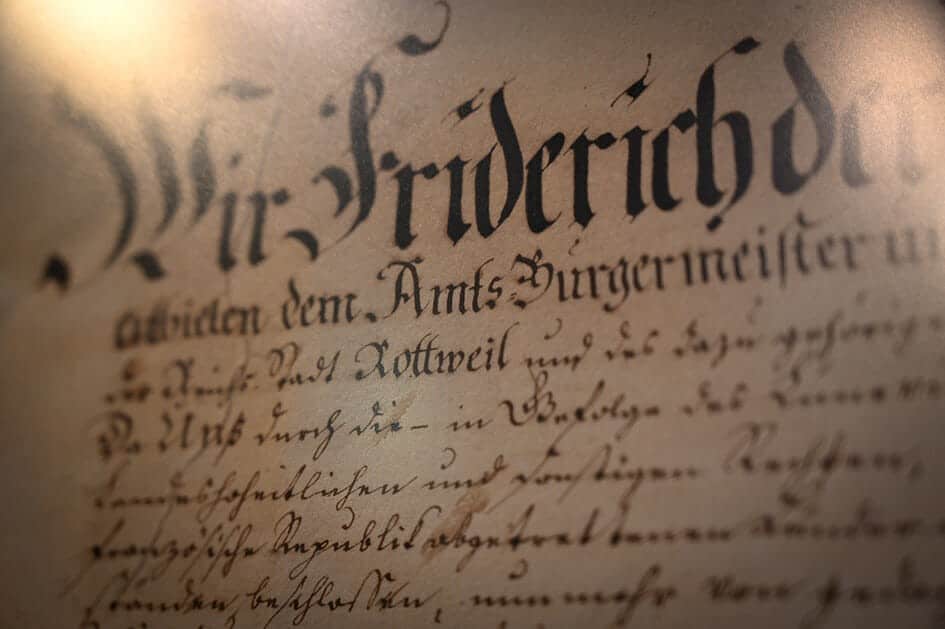 Wir Friderich der
entbieten dem Amts-Bürgermeister
der Reichs-Stadt Rottweil und des dazu gehörig
Da Unß durch die – in Gefolge des
Landeshoheitlichen und sonstigen Rechten,
französische Republik abgetrettenen Länder
ständen, beschlossen, nunmehr von